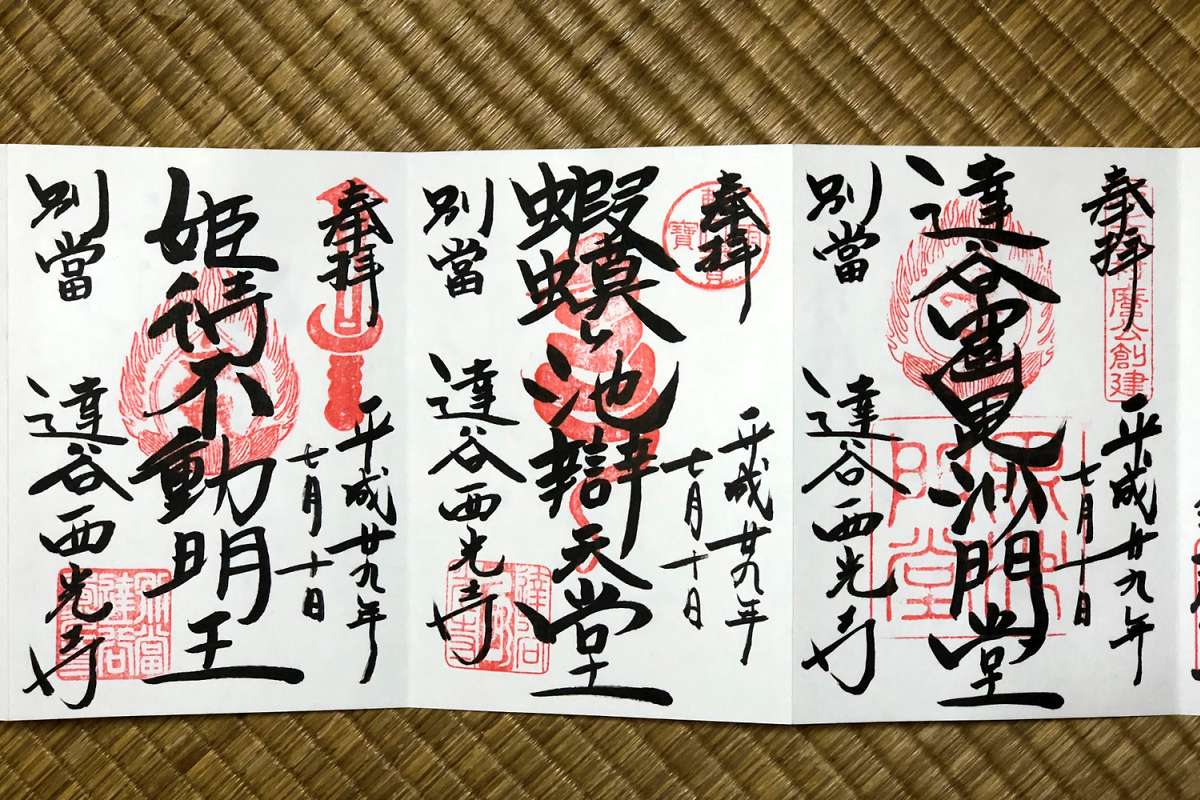 奉拝
麿公創建
平成廿九年
七月十日
達谷窟毘沙門堂
別當
達谷西光寺
奉拝
平成廿九年
七月十日
蝦蟆ヶ池辯天堂
別當
達谷西光寺
奉拝
平成廿九年
七月十日
姫待不動明王
別當
達谷西光寺